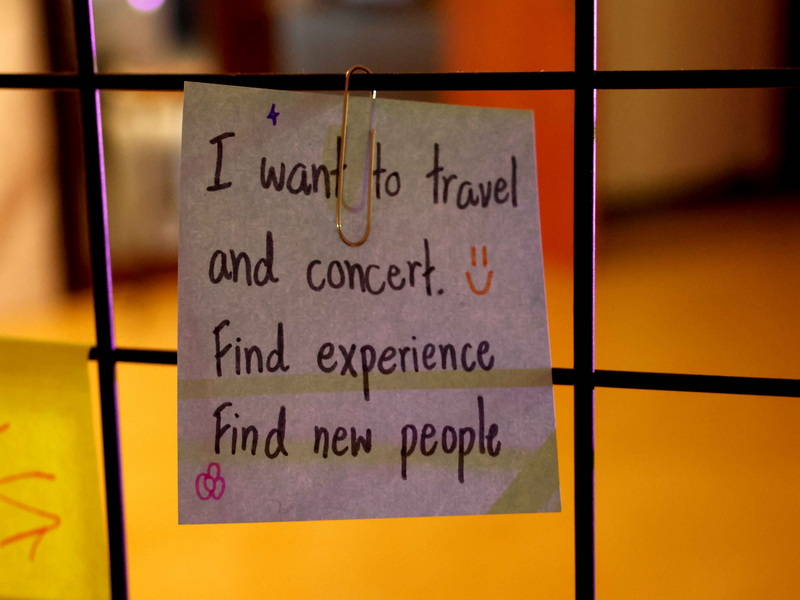 I want to travel
and concert.
Find experience
Find new people